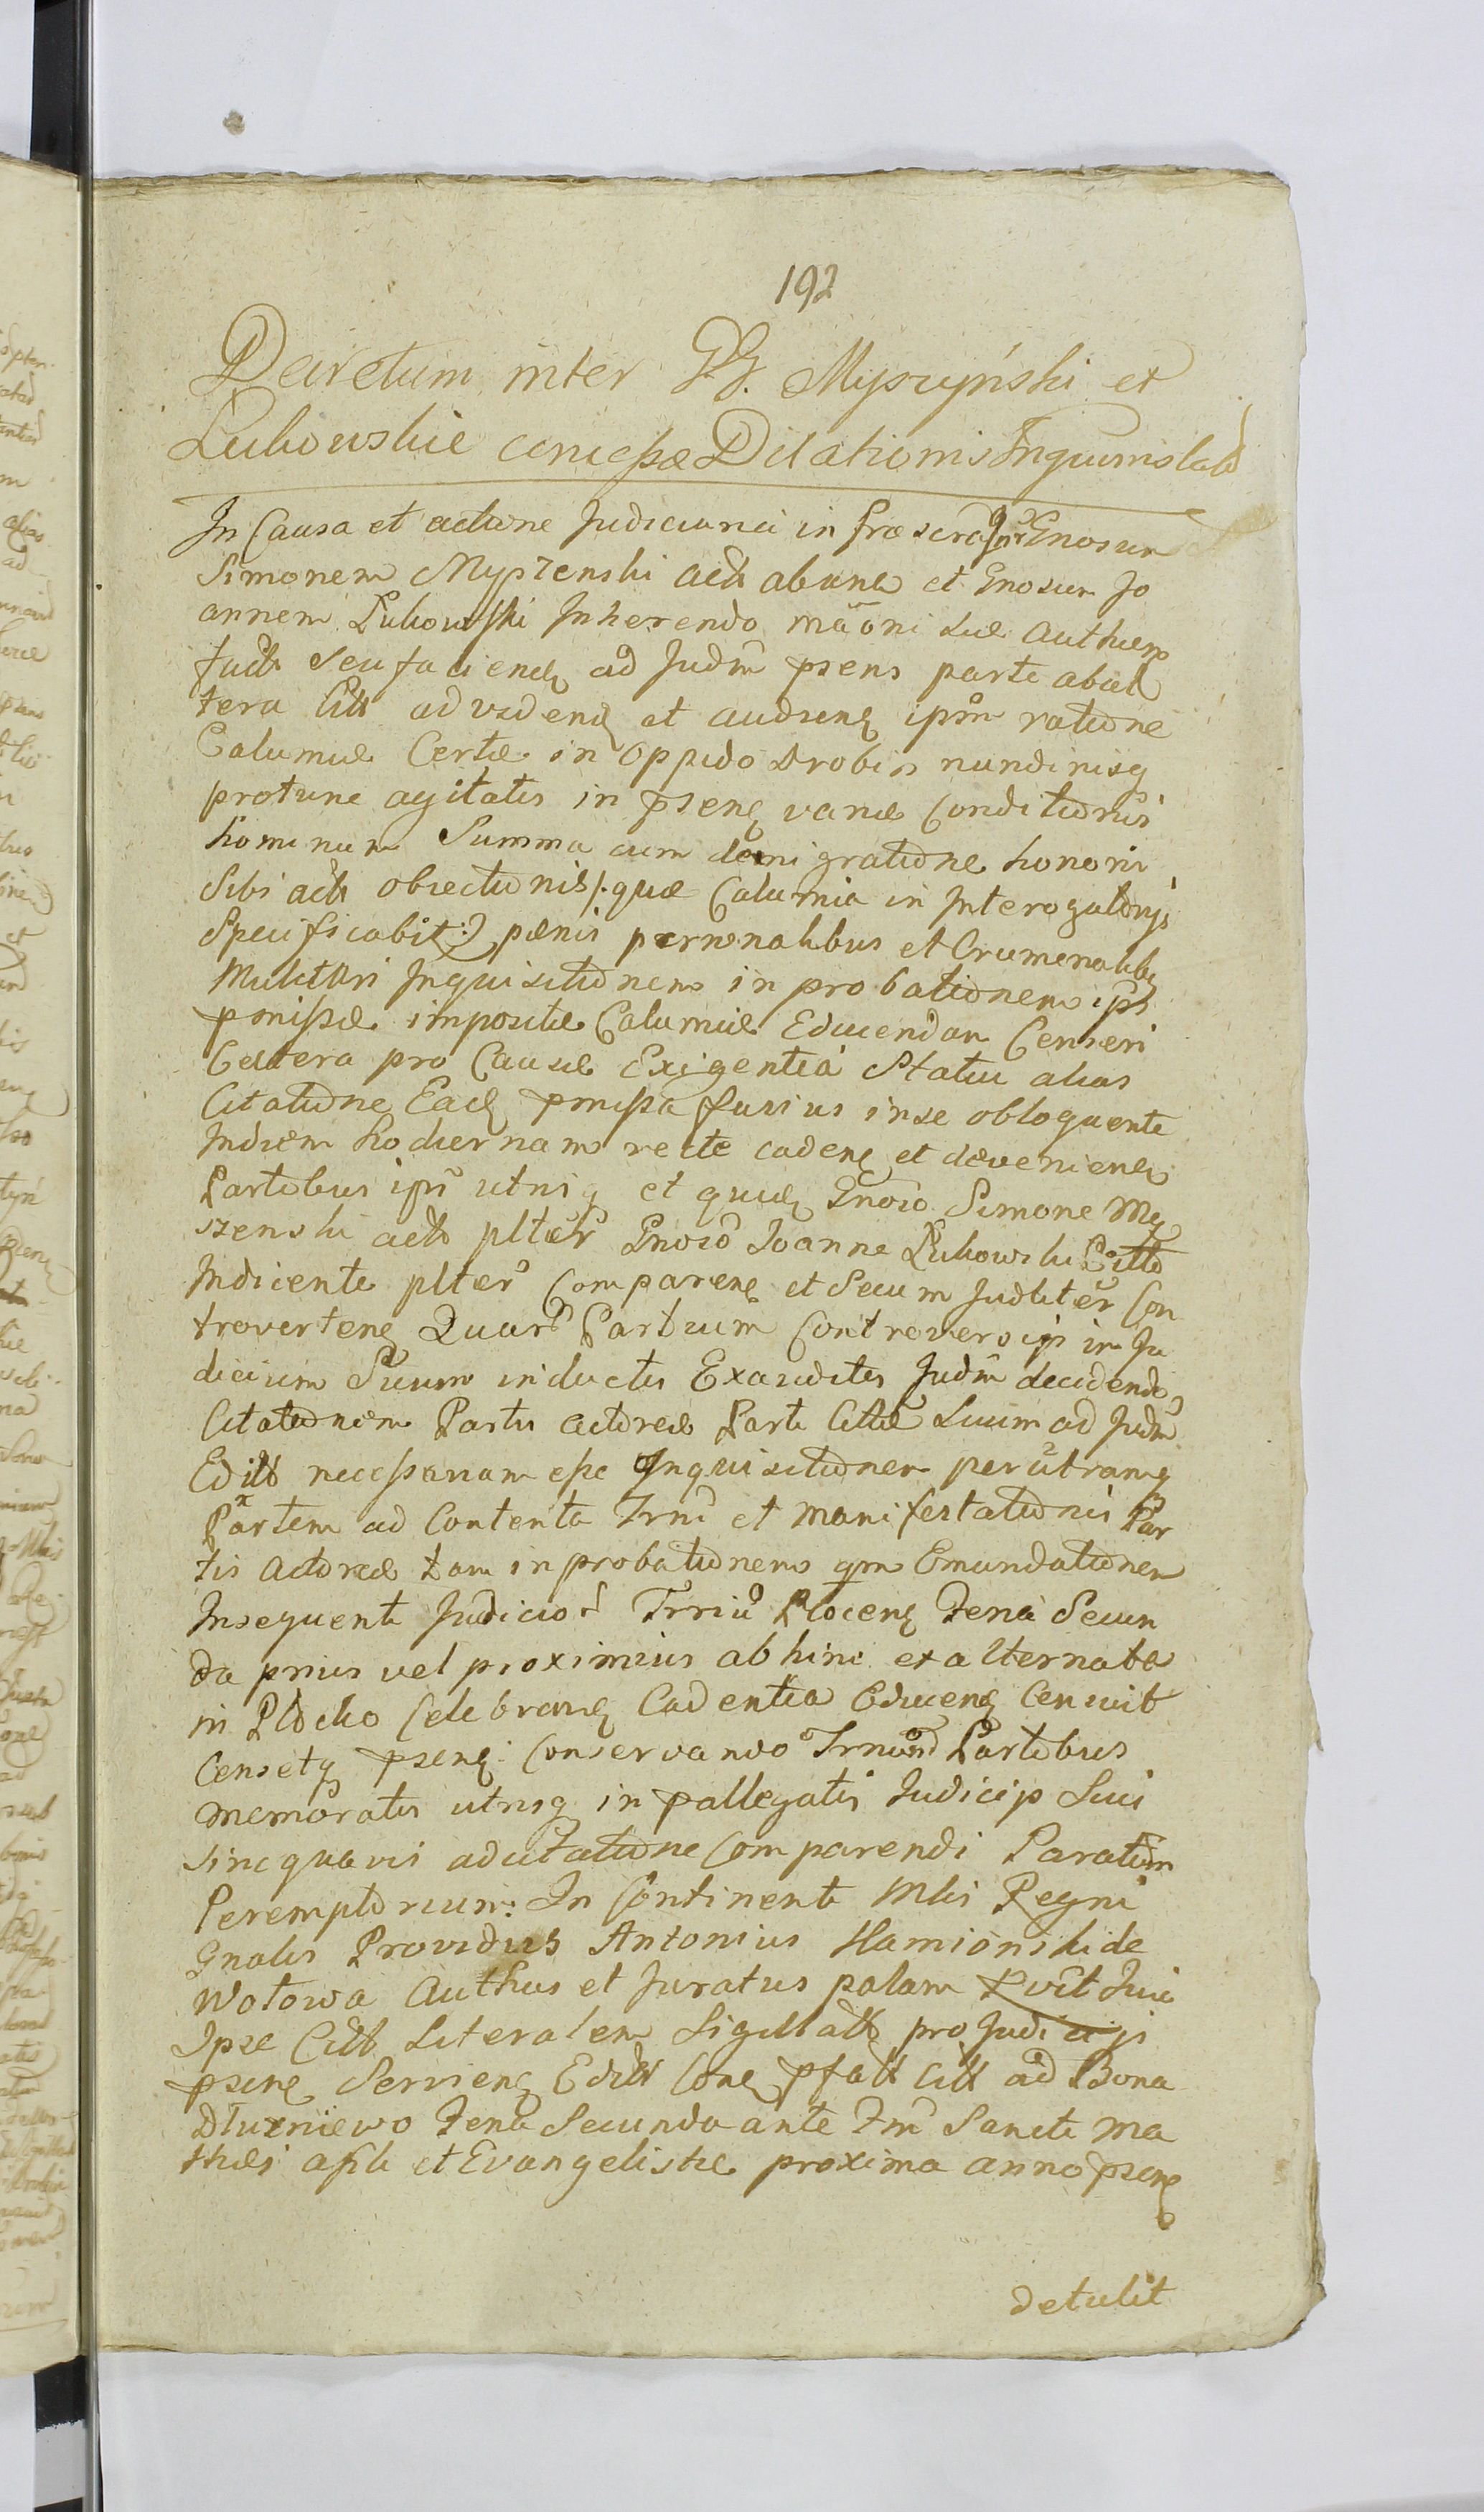 192
Decretum inter GG. Myszyński et
Lukowskie concessæ Dilationis
In Causa et actione Judiciaria infrascra Inr Gnosum
Simonem Myszenski act ab una et Gnosum Jo
annem Lukowski Inherendo mãoni suæ
factæ seu faciend ad Judm psens parte ab al
tera Citt ad vidend et audiend ipsm ratione
Calumniæ Certæ in Oppido Drobin nundinisq
protunc agitatis in psenq variæ Conditionis
hominum Summa cum denigratione honoris
Sibi act obiectionis /: quæ Calumnia in Interogatoryis
Specificabit :/ pænis personalibus et Crumenalibq
Mulctari Inquisitionem in probationem ips
pmissæ impositæ Calumniæ Educendam Censeri
Cætera pro Causæ Exigentia Statui alias
Citatione Eadq pmissa fusius in se obloquente
In diem hodiernam recte cadenq et devenienq
Partibus ips utrisq et quidq Gnoso Simone My
szenski acto plter Gnoso Joanne Lukowski Citto
Indicente plter Comparenq et Secum Judliter Con
trovertenq Quarũ Partium Controversijs in Ju
dicium Suum inductis Exauditis Judm decidendo
Citationem Partis actoreæ Parti Cittæ Suum ad Judm
Editt necessariam esse Inquisitionem per utramq
Partem ad Contenta Trni et Manifestationis Par
tis Actoreæ tam in probationem qm Emundationem
In sequenti Judicior Trriu Plocenq Feria Secun
da prius vel proximius abhinc ex alternata
in Plocko Celebranq Cadentia Educenq Censuit
Censetq psenq Conservando Trnum Partibus
memoratis utrisq in pallegatis Judicijs Suis
sine quavis adcitatione Comparendi Paratum
Peremptorium. In Continenti Mlis Regni
Gnalis Providus Antonius Hamionski de
Wotowa Authus et Juratus palam rvit Quia
Ipse Citt Literalem Sigillatt pro Judicijs
psenq Servienq Editt Conq pfatt Citt ad Bona
Dłuzniewo Feria Secunda ante Fm Sancti Ma
thæi apli et Evangelistæ proxima anno psenq
detulit